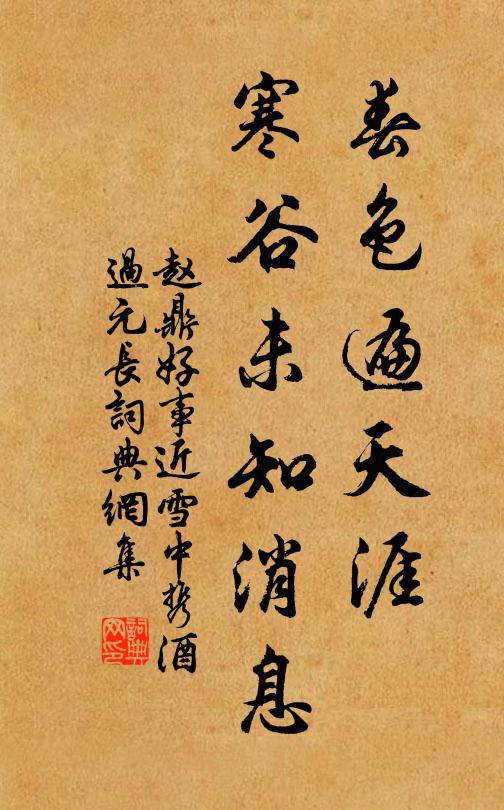 春色遍天涯
寒谷未知消息
赵鼎好事近雪中携酒
過元長詞典網集
詞典網印